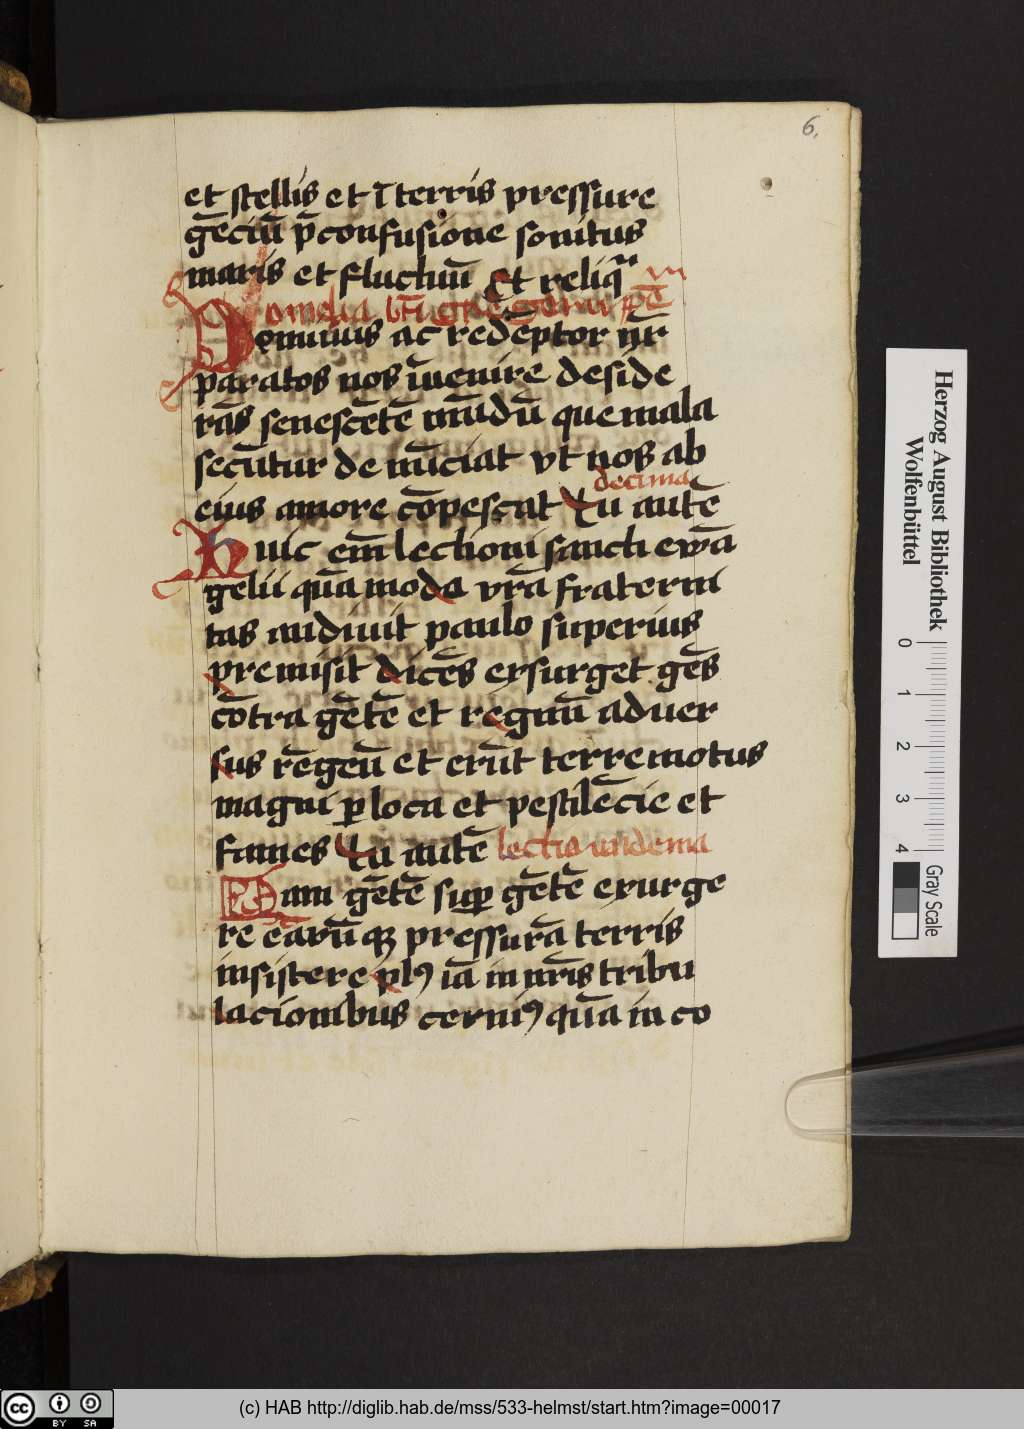 6.
et stellis et ī terris pressure
gēciū p̄ confusione sonitus
maris et fluctuū Et reliq̄
Omelia bt̄i gregorii pp̄e
Dominus ac redēptor nr̄
paratos nos īuenire deside
rās senescētē mūdū que mala
secūtur de nūciat vt nos ab
eius amore cōpescat Tu autē
decima
Huic em̄ lectioni sancti ewā
gelii quā modo vrā fraterni
tas audiuit paulo superius
premisit dicēs exsurget gēs
cōtra gētē et regnū aduer
sus rēgnū et erūt terre motus
magni ꝑ loca et pestilēcie et
fames Tu autē lectio undema
Nam gētē suꝑ gētē exurge
re eārūqꝫ pressurā terris
insistere plꝰ iā in nr̄is tribu
lacionibus cerniꝰ quā in co
Herzog August Bibliothek
Wolfenbüttel
0 1 2 3 4
Gray Scale
cc BY SA
(c) HAB http://diglib.hab.de/mss/533-helmst/start.htm?image=00017